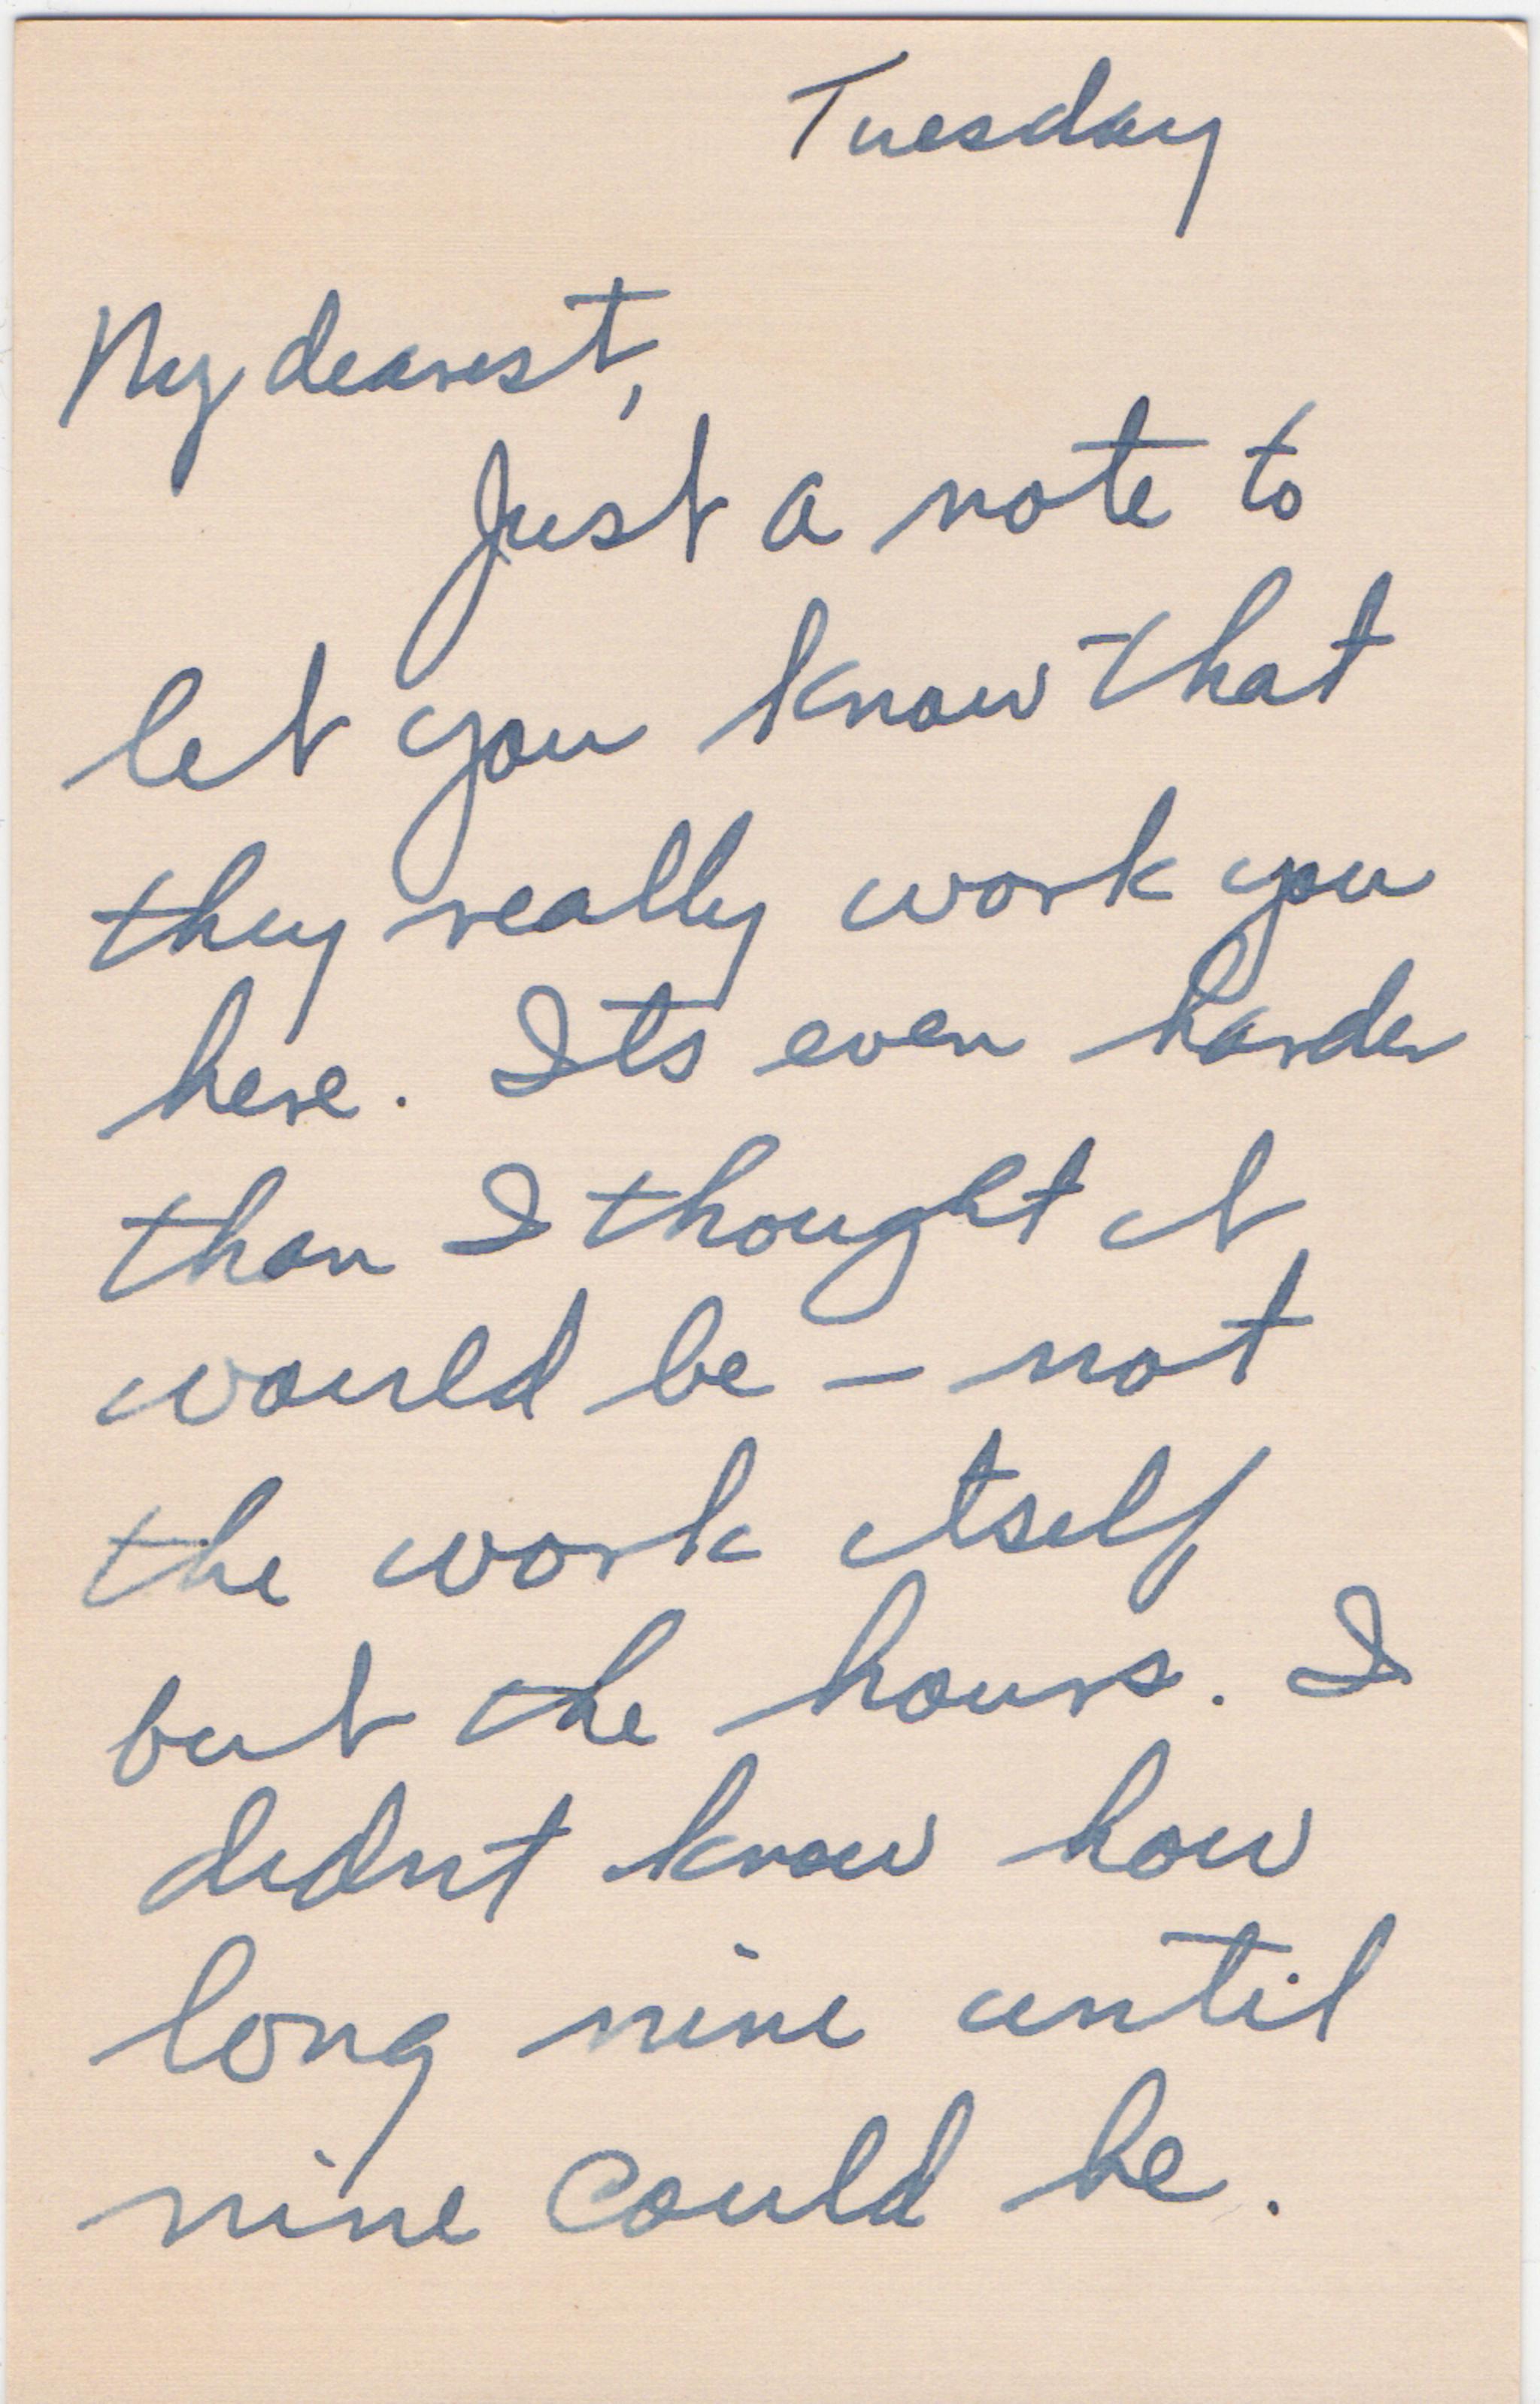 Tuesday
My dearest,
Just a note to
let you know that
they really work you
here. Its even harder
than I thought it
would be – not
the work itself
but the hours. I
didnt know how
long nine until
nine could be.